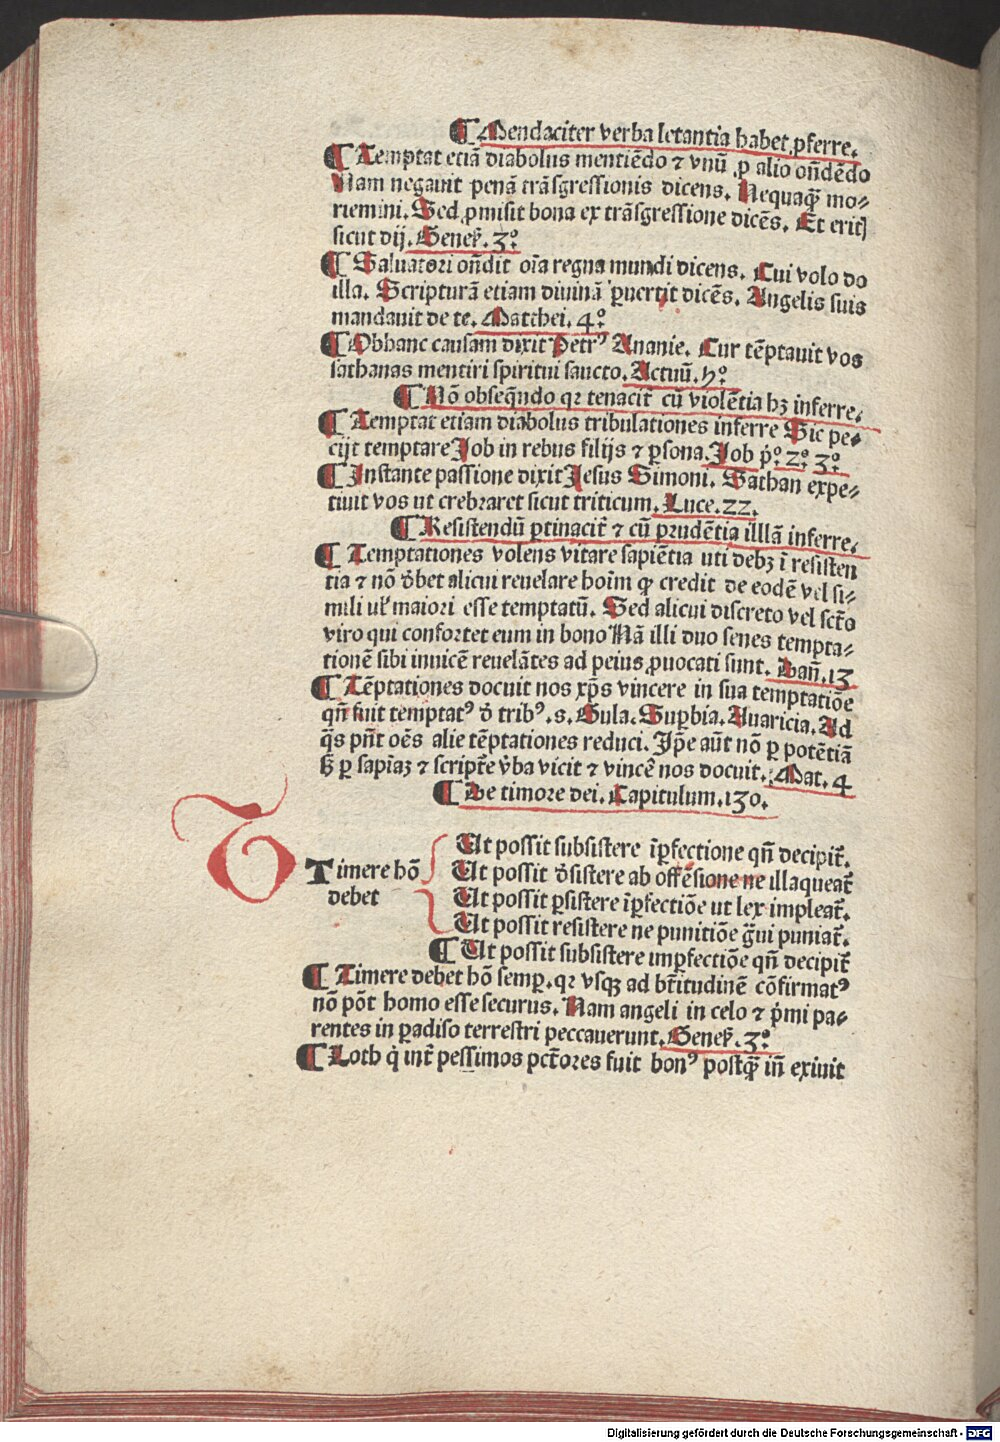 ¶ Mendaciter verba letantia habet ꝓferre.
¶ Temptat etiā diabolus mentiēdo ⁊ vnū ꝓ alio oñdēdo
Nam negauit penā trāsgressionis dicens. Nequaq̄ mo⸗
riemini. Sed ꝓmisit bona ex trāsgressione dicēs. Et eritꝭ
sicut dij. Geneẜ. 3°
¶ Saluatori oñdit oīa regna mundi dicens. Cui volo do
illa. Scripturā etiam diuinā ꝑuertit dicēs. Angelis suis
mandauit de te. Matthei. 4°
¶ Obhanc causam dixit Petrꝰ Ananie. Cur tēptauit vos
sathanas mentiri spiritui sancto. Actuū. 5°
¶ Nō obseq̄ndo qꝛ tenacit̄ cū violētia hꝫ inferre.
¶ Temptat etiam diabolus tribulationes inferre Sic pe⸗
cijt temptare Job in rebus filijs ⁊ ꝑsona. Job p̄° 2° 3°
¶ Instante passione dixit Jesus Simoni. Sathan expe⸗
tiuit vos ut crebraret sicut triticum. Luce. 22.
¶ Resistendū ꝑtinacit̄ ⁊ cū prudētia illlā inferre.
¶ Temptationes volens vitare sapiētia uti debꝫ ī resisten
tia ⁊ nō d̄bet alicui reuelare hoīm q̄ credit de eodē vel si⸗
mili ul̄ maiori esse temptatū. Sed alicui discreto vel sct̄o
viro qui confortet eum in bono Nā illi duo senes tempta⸗
tionē sibi inuicē reuelātes ad peius ꝓuocati sunt. Dañ. 13
¶ Tēptationes docuit nos xp̄s vincere in sua temptatiōe
qñ fuit temptatꝰ d̄ tribꝰ .s. Gula. Suꝑbia. Auaricia. Ad
q̄s pn̄t oēs alie tēptationes reduci. Ip̄e aūt nō ꝑ potētiā
ꝫ ꝑ sapiaꝫ ⁊ script̄e v̄ba vicit ⁊ vincē nos docuit. Mat. 4
¶ De timore dei. Capitulum. 130.
Timere hō
debet
Ut possit subsistere īꝑfectione qñ decipit̄.
Ut possit d̄sistere ab offēsione ne illaqueat̄
Ut possit ꝑsistere īꝑfectiōe ut lex impleat̄.
Ut possit resistere ne punitiōe g̃ui puniat̄.
¶ Ut possit subsistere imꝑfectiōe qñ decipit̄
¶ Timere debet hō semꝑ. qꝛ vsqꝫ ad bt̄itudinē cōfirmatꝰ
nō pōt homo esse securus. Nam angeli in celo ⁊ p̄mi pa⸗
rentes in ꝑadiso terrestri peccauerunt. Geneẜ. 3°
¶ Loth q̇ int̄ pessimos pct̄ores fuit bonꝰ postq̄ iñ exiuit
Digitalisierung gefördert durch die Deutsche Forschungsgemeinschaft - DFG